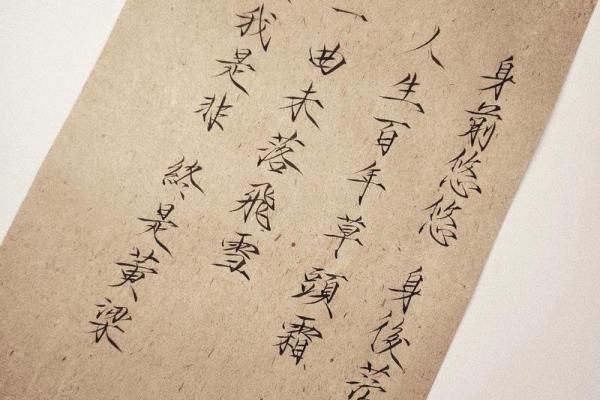 身前悠悠 身後
人生百年草頭霜
一曲未落飛雪
我是非 終是黄梁